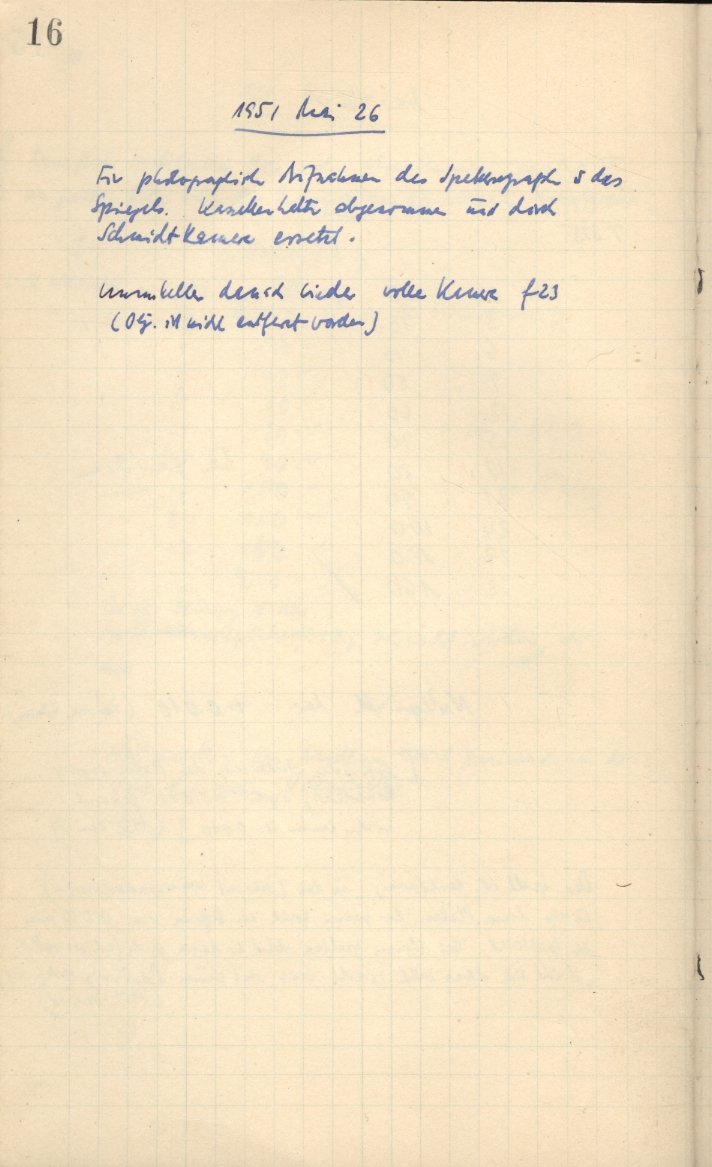 16
1951 Mai 26
Für photographische Aufnahmen des Spektrographen & des
Spiegels. Kassettenhalter abgenommen und durch
Schmidt Kamera ersetzt.
danach wieder volle Kamera f 23
(Obj. ist nicht entfernt worden)